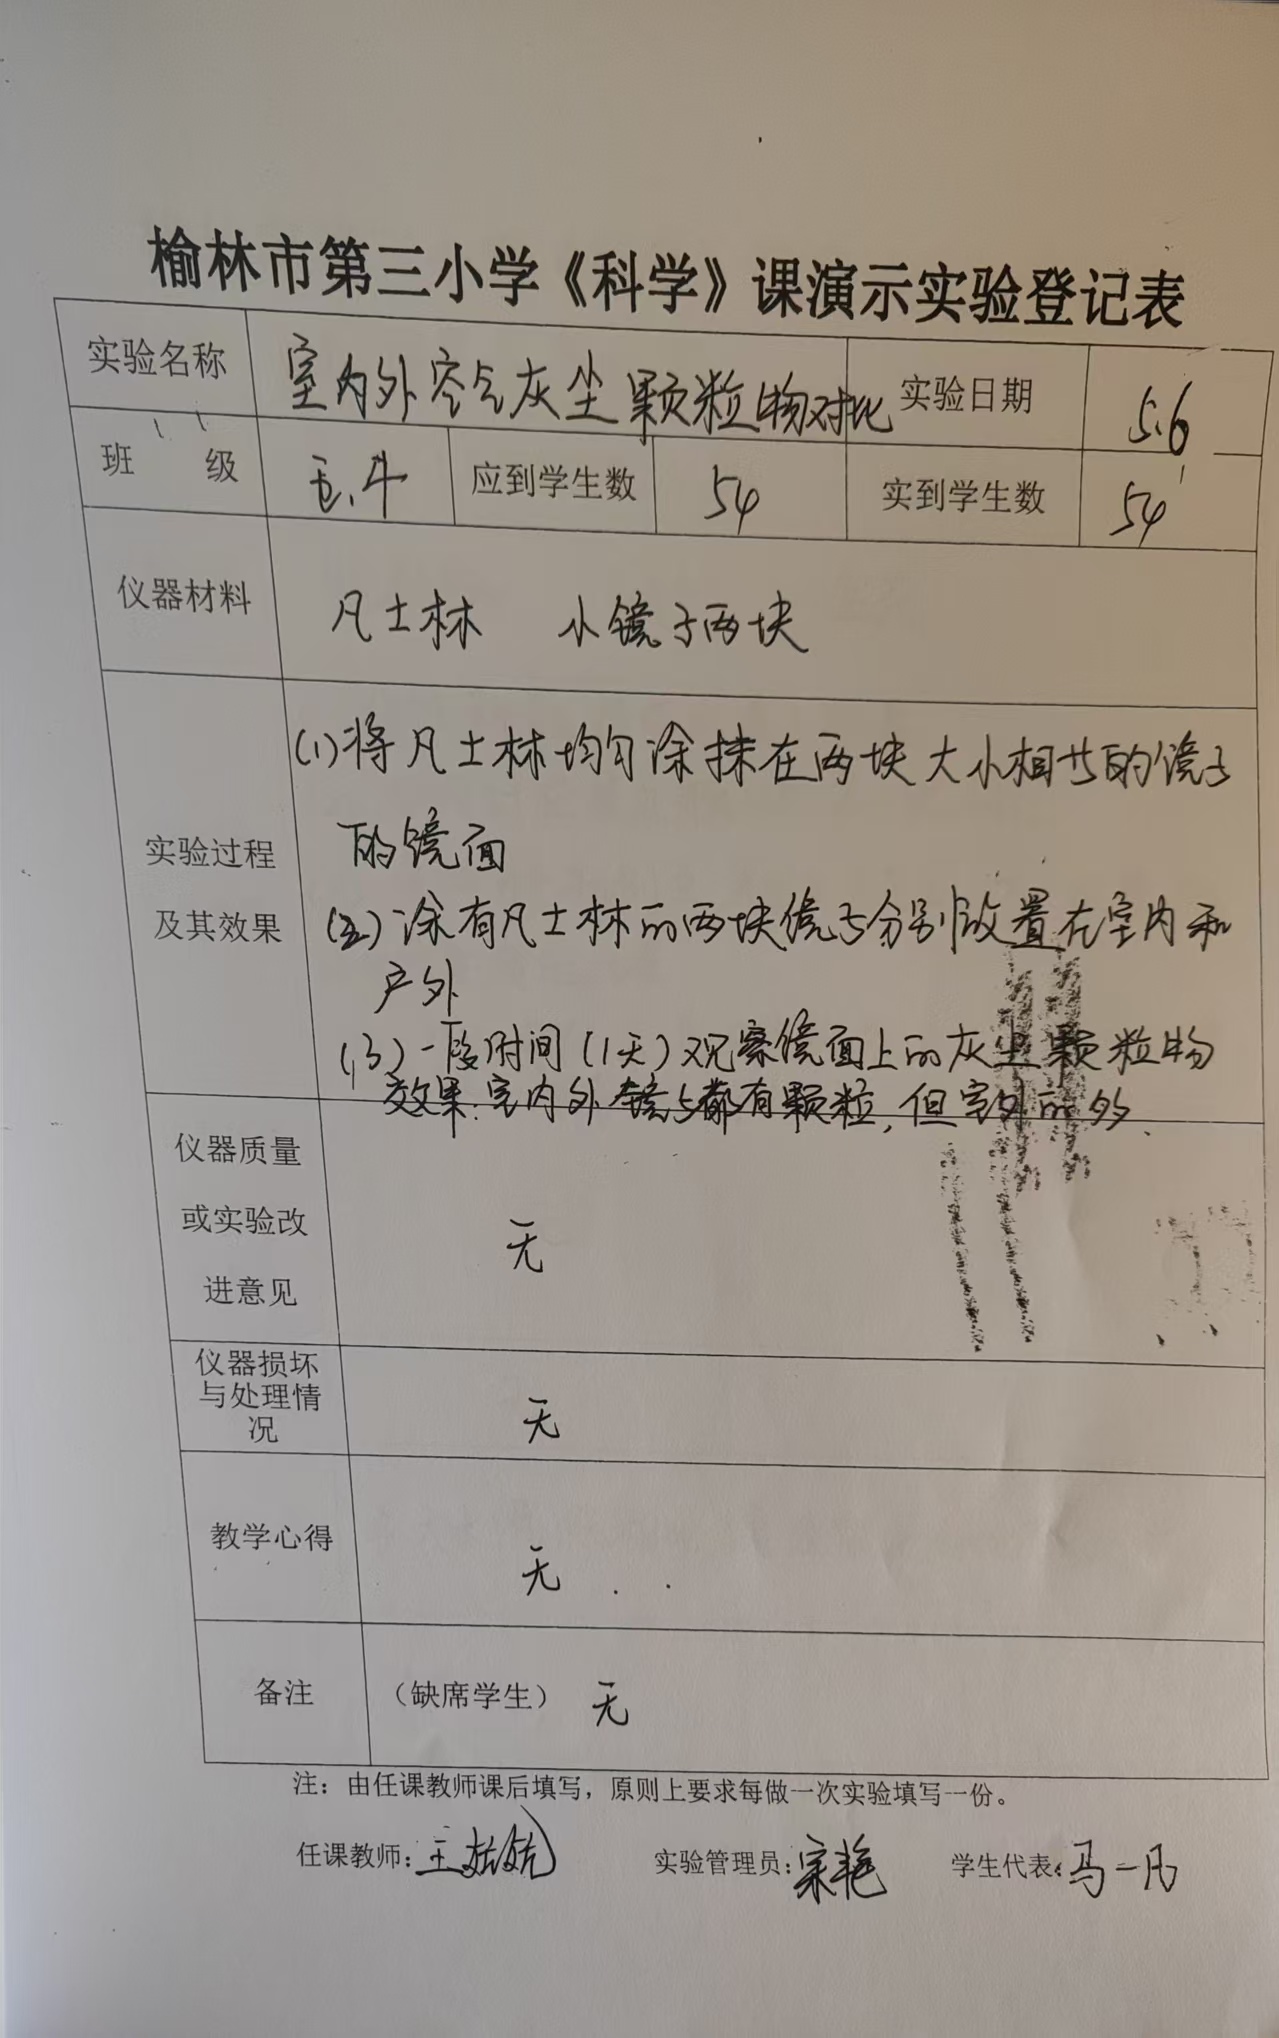 榆林市第三小学《科学》课演示实验登记表
实验名称 室内外空气灰尘颗粒物对比 实验日期 5.6
班级 五.4 应到学生数 54 实到学生数 54
仪器材料 凡士林 小镜子两块
实验过程及其效果
(1)将凡士林均匀涂抹在两块大小相共的镜子
的镜面
(2)涂有凡士林的两块镜子分别放置在室内和
户外
(3)一段时间(1天)观察镜面上的灰尘颗粒物
效果:室内外镜子都有颗粒,但室外的多.
仪器质量
或实验改
进意见
无
仪器损坏
与处理情
况
无
教学心得 无
备注 (缺席学生) 无
注：由任课教师课后填写，原则上要求每做一次实验填写一份。
任课教师: 王 实验管理员: 宋艳 学生代表: 马一凡